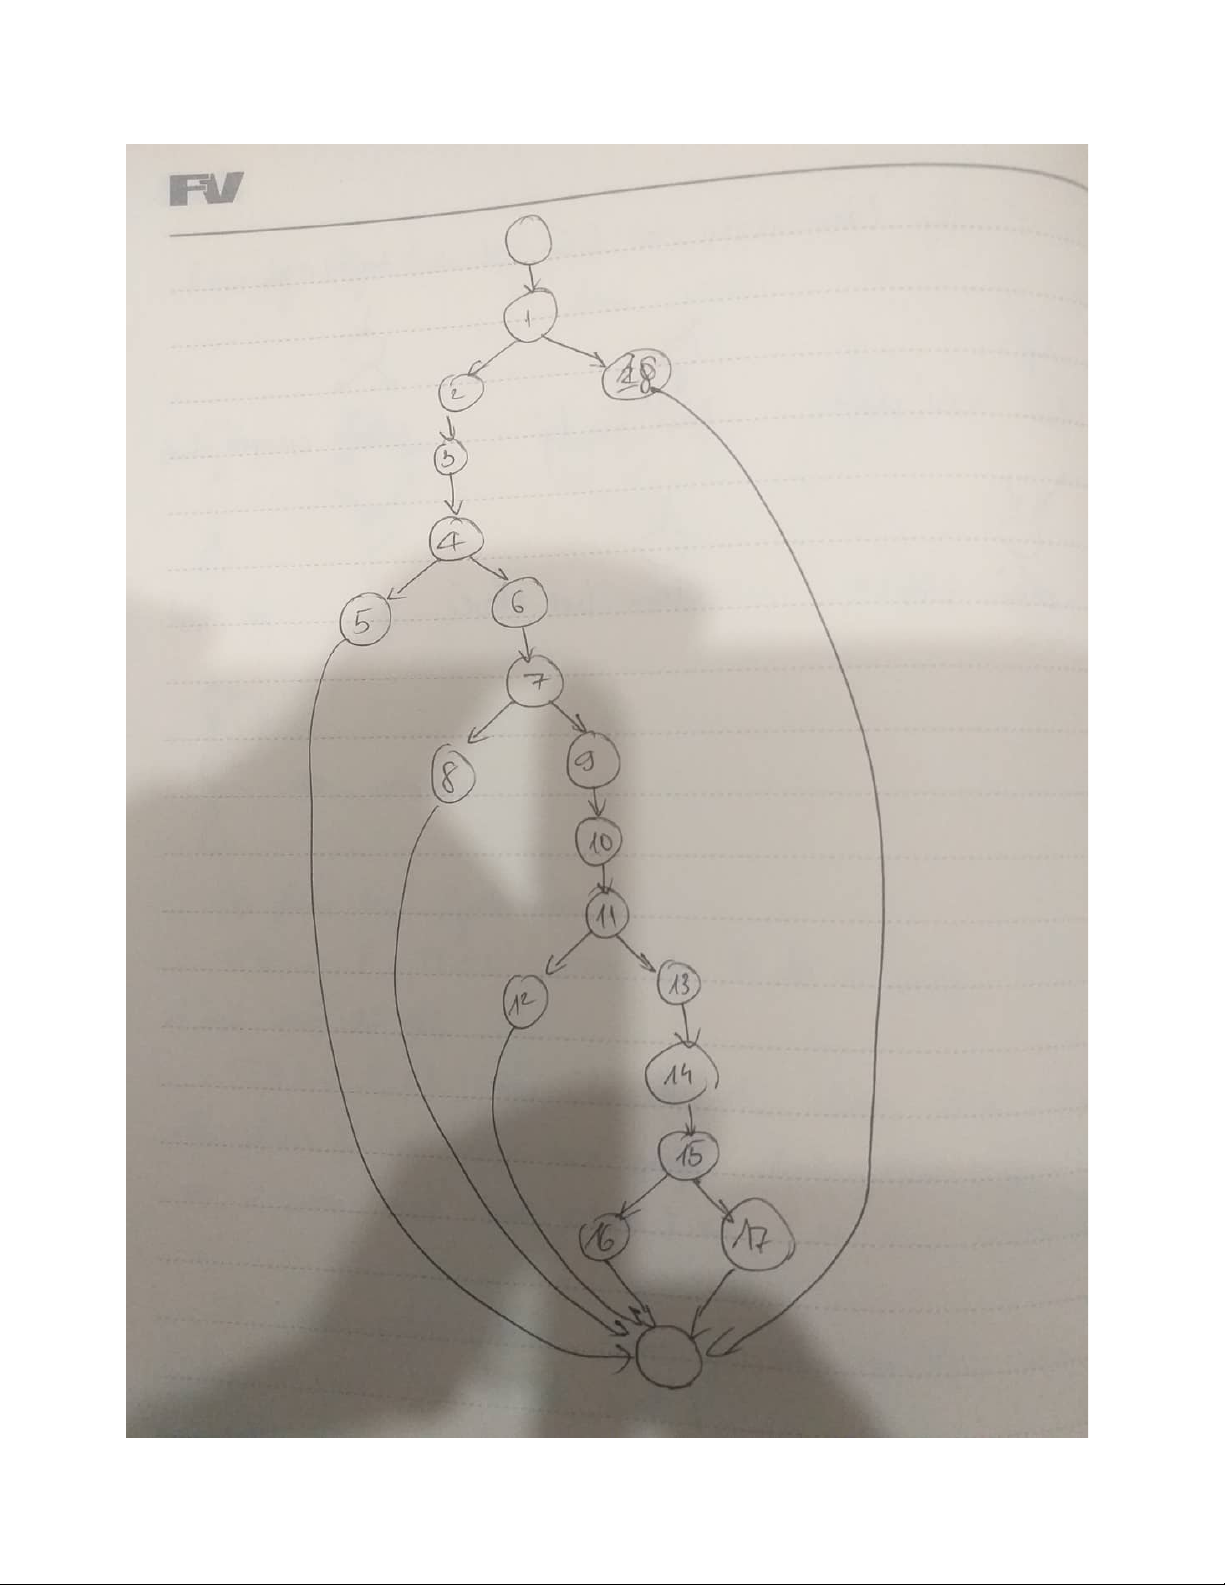 FV
1
2
18
3
4
5
6
7
8
9
10
11
12
13
14
15
16
17